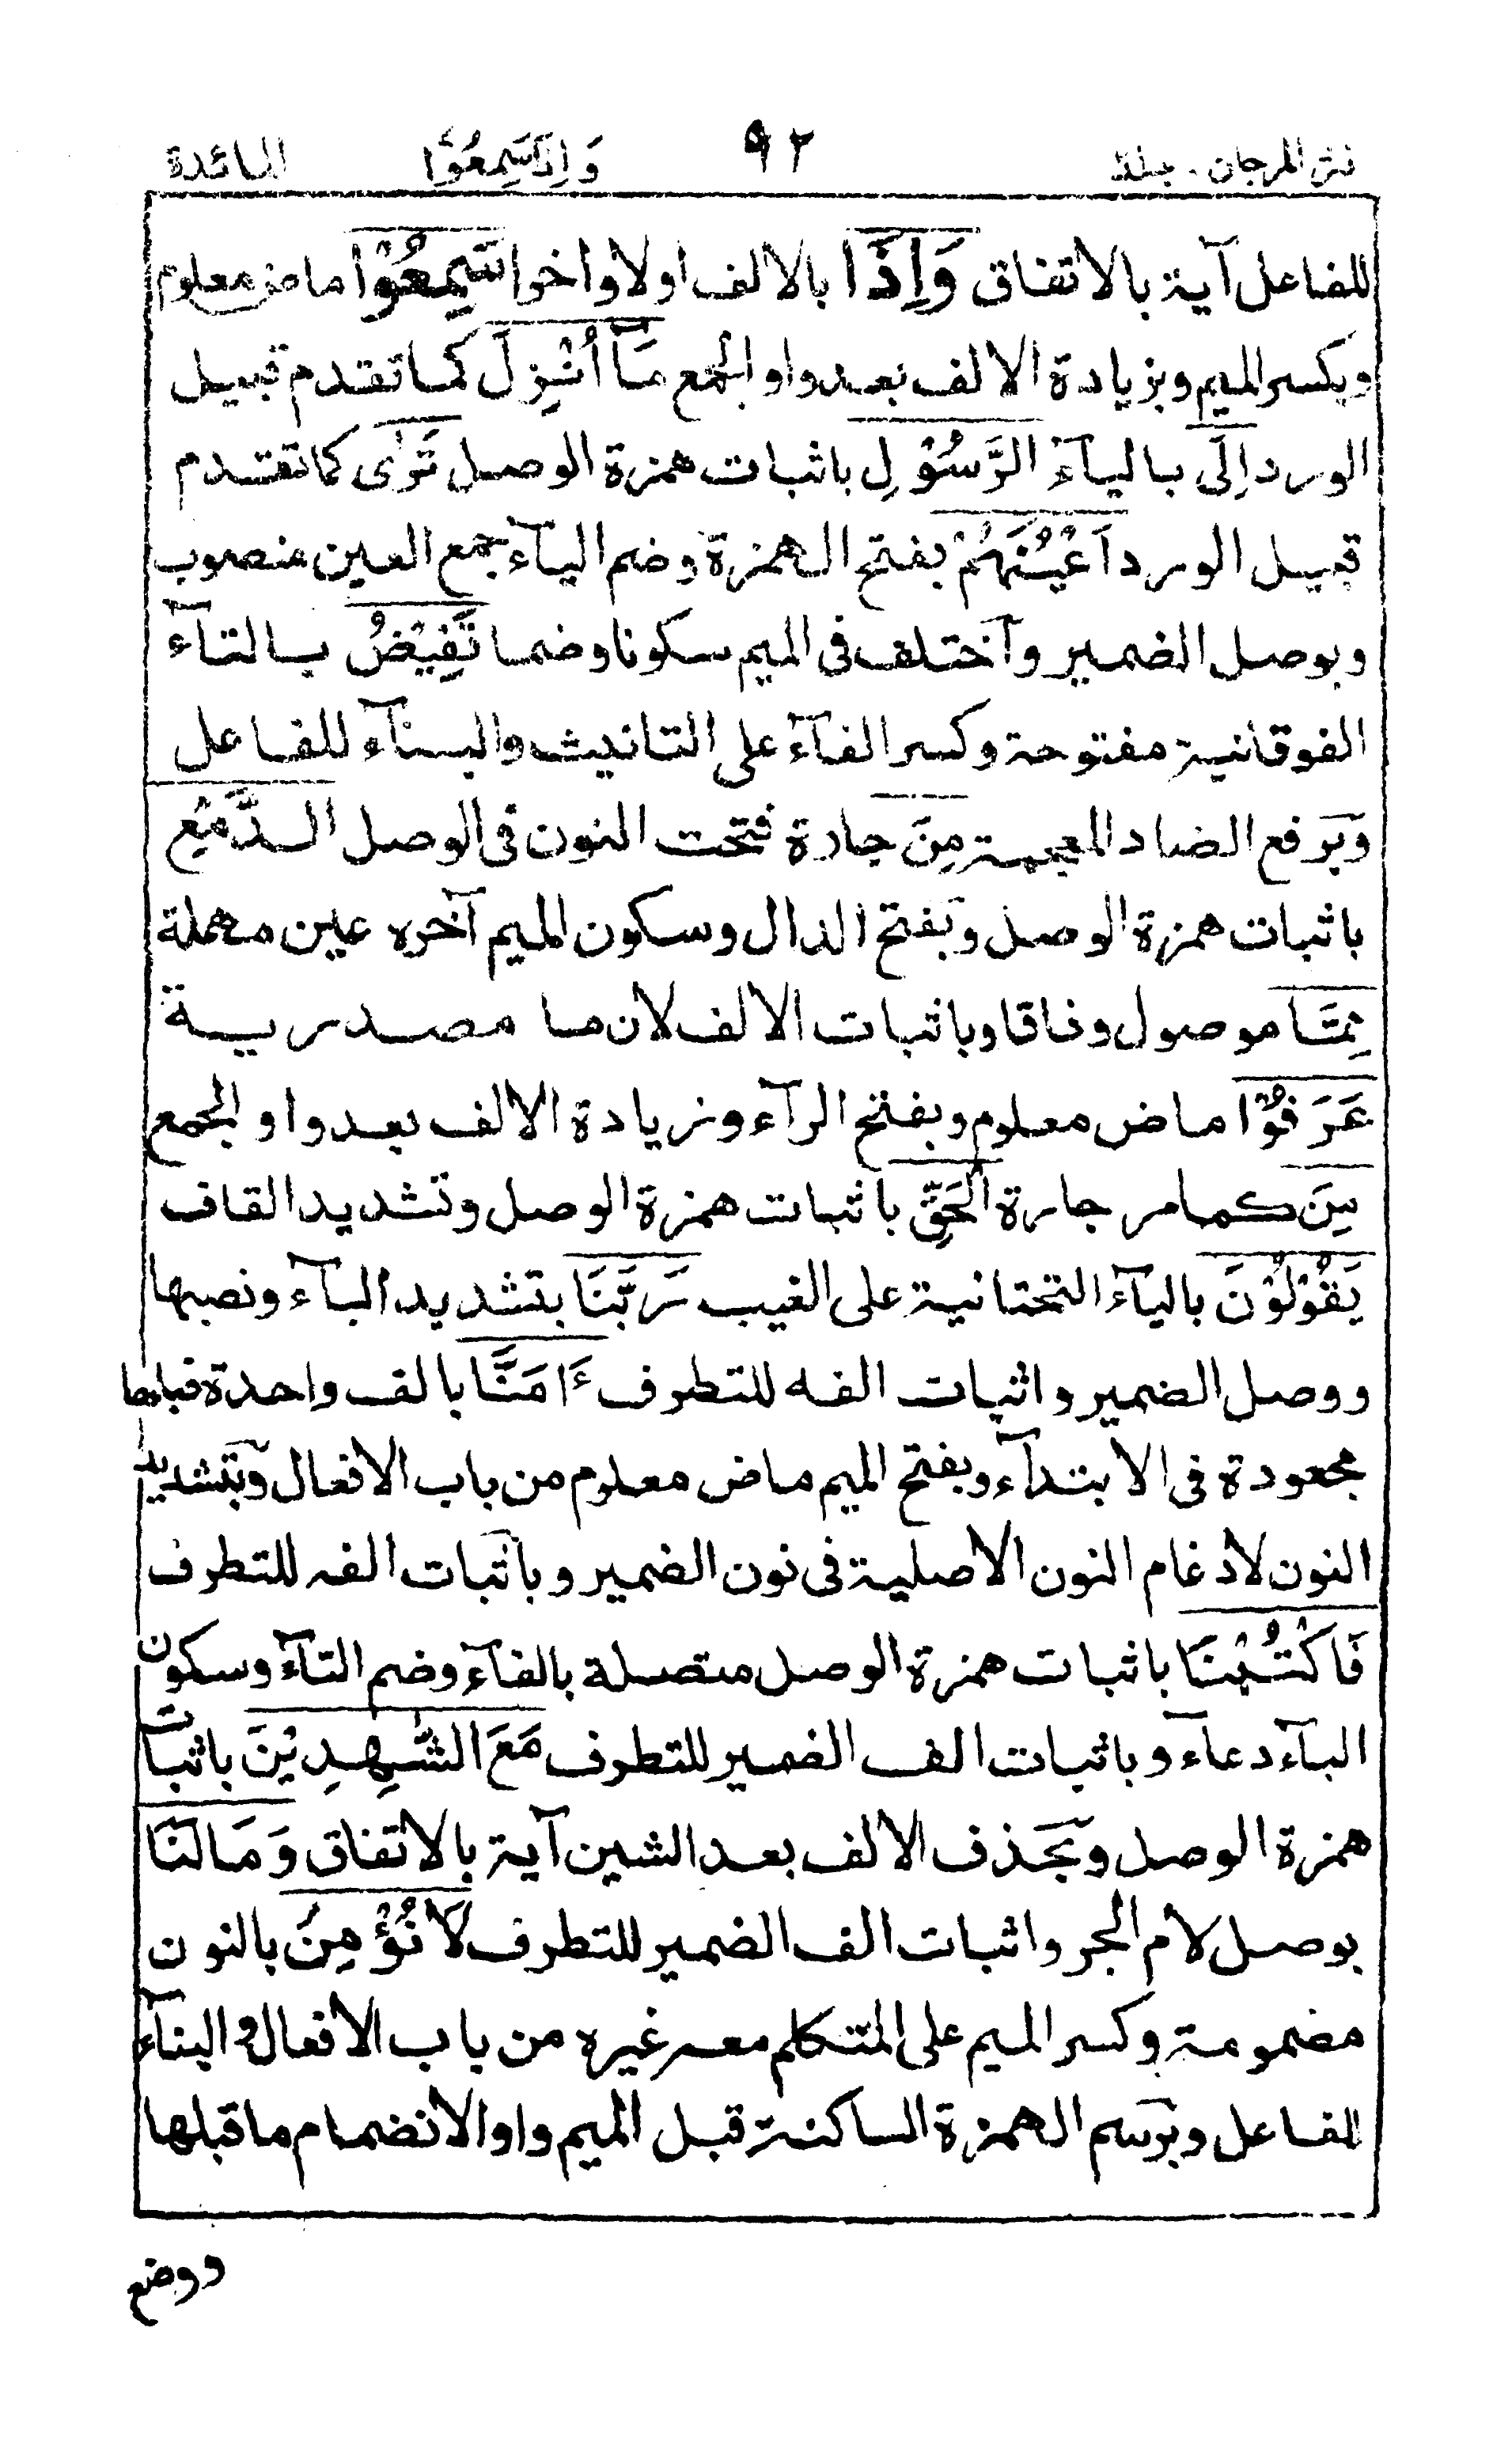 نثر المرجان. جلد ٢ ٩٢ وَاِذَا سَمِعُوْا المائدة
للفاعل آية بالاتفاق وَاِذَا بالالف اولا واخرا سَمِعُوْا ماض معلوم
وبكسر الميم وبزيادة الالف بعد واو الجمع مَآ اُنْزِلَ كما تقدم قبيل
الورد اِلَى بالياء الرَّسُوْلِ باثبات همزة الوصل تَرٰى كما تقدم
قبيل الورد اَعْيُنَهُمْ بفتح الهمزة وضم اليآء جمع العين منصوب
وبوصل الضمير وآختلف فى الميم سكونا وضما تَفِيْضُ بالتآء
الفوقانية مفتوحة وكسر الفآء على التانيث والبنآء للفاعل
وبرفع الضاد المعجمة مِنَ جارة فتحت النون فى الوصل الدَّمْعِ
باثبات همزة الوصل وبفتح الدال وسكون الميم آخره عين مهملة
مِمَّا موصول وفاقا وباثبات الالف لان ما مصدرية
عَرَفُوْا ماض معلوم وبفتح الرآء وزيادة الالف بعد واو الجمع
مِنَ كما مر جارة الْحَقِّ باثبات همزة الوصل وتشديد القاف
يَقُوْلُوْنَ باليآء التحتانية على الغيب رَبَّنَا بتشديد البآء ونصبها
ووصل الضمير واثبات الفه للتطرف ءَامَنَّا بالف واحدة قبلها
مجعودة فى الابتدآء وبفتح الميم ماض معلوم من باب الافعال وبتشديد
النون لادغام النون الاصلية فى نون الضمير وباثبات الفه للتطرف
فَاكْتُبْنَا باثبات همزة الوصل متصلة بالفآء وضم التآء وسكون
البآء دعاء وباثبات الف الضمير للتطرف مَعَ الشّٰهِدِيْنَ باثبات
همزة الوصل وبحذف الالف بعد الشين آية بالاتفاق وَمَا لَنَا
بوصل لام الجر واثبات الف الضمير للتطرف لَا نُؤْمِنُ بالنون
مضمومة وكسر الميم على المتكلم معه غيره من باب الافعال والبنآء
للفاعل وبرسم الهمزة الساكنة قبل الميم واوا لانضمام ما قبلها
ووضع